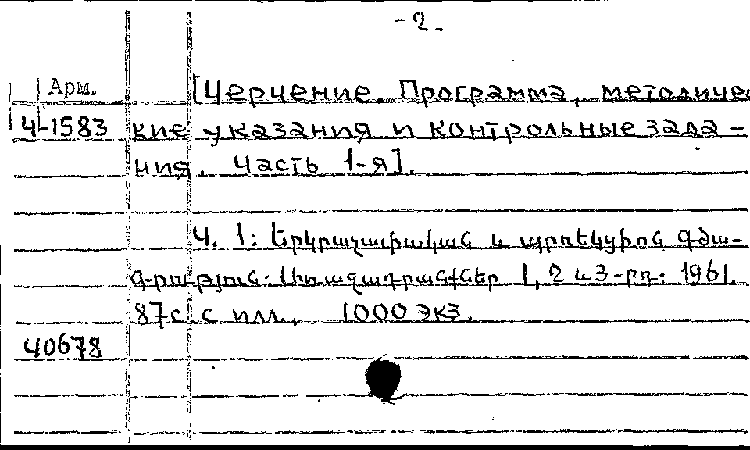 -2-
Арм.
[Черчение. Программа, методичес
4-1583 кие указания и контрольные зада-
ния. Часть 1-я].
Մ. 1: Երկրաչափական և պրոեկցիոն գծա-
գրություն: Առաջադրանքներ 1, 2 և 3-րդ: 1961.
87с. с илл., 1000 экз.
40678